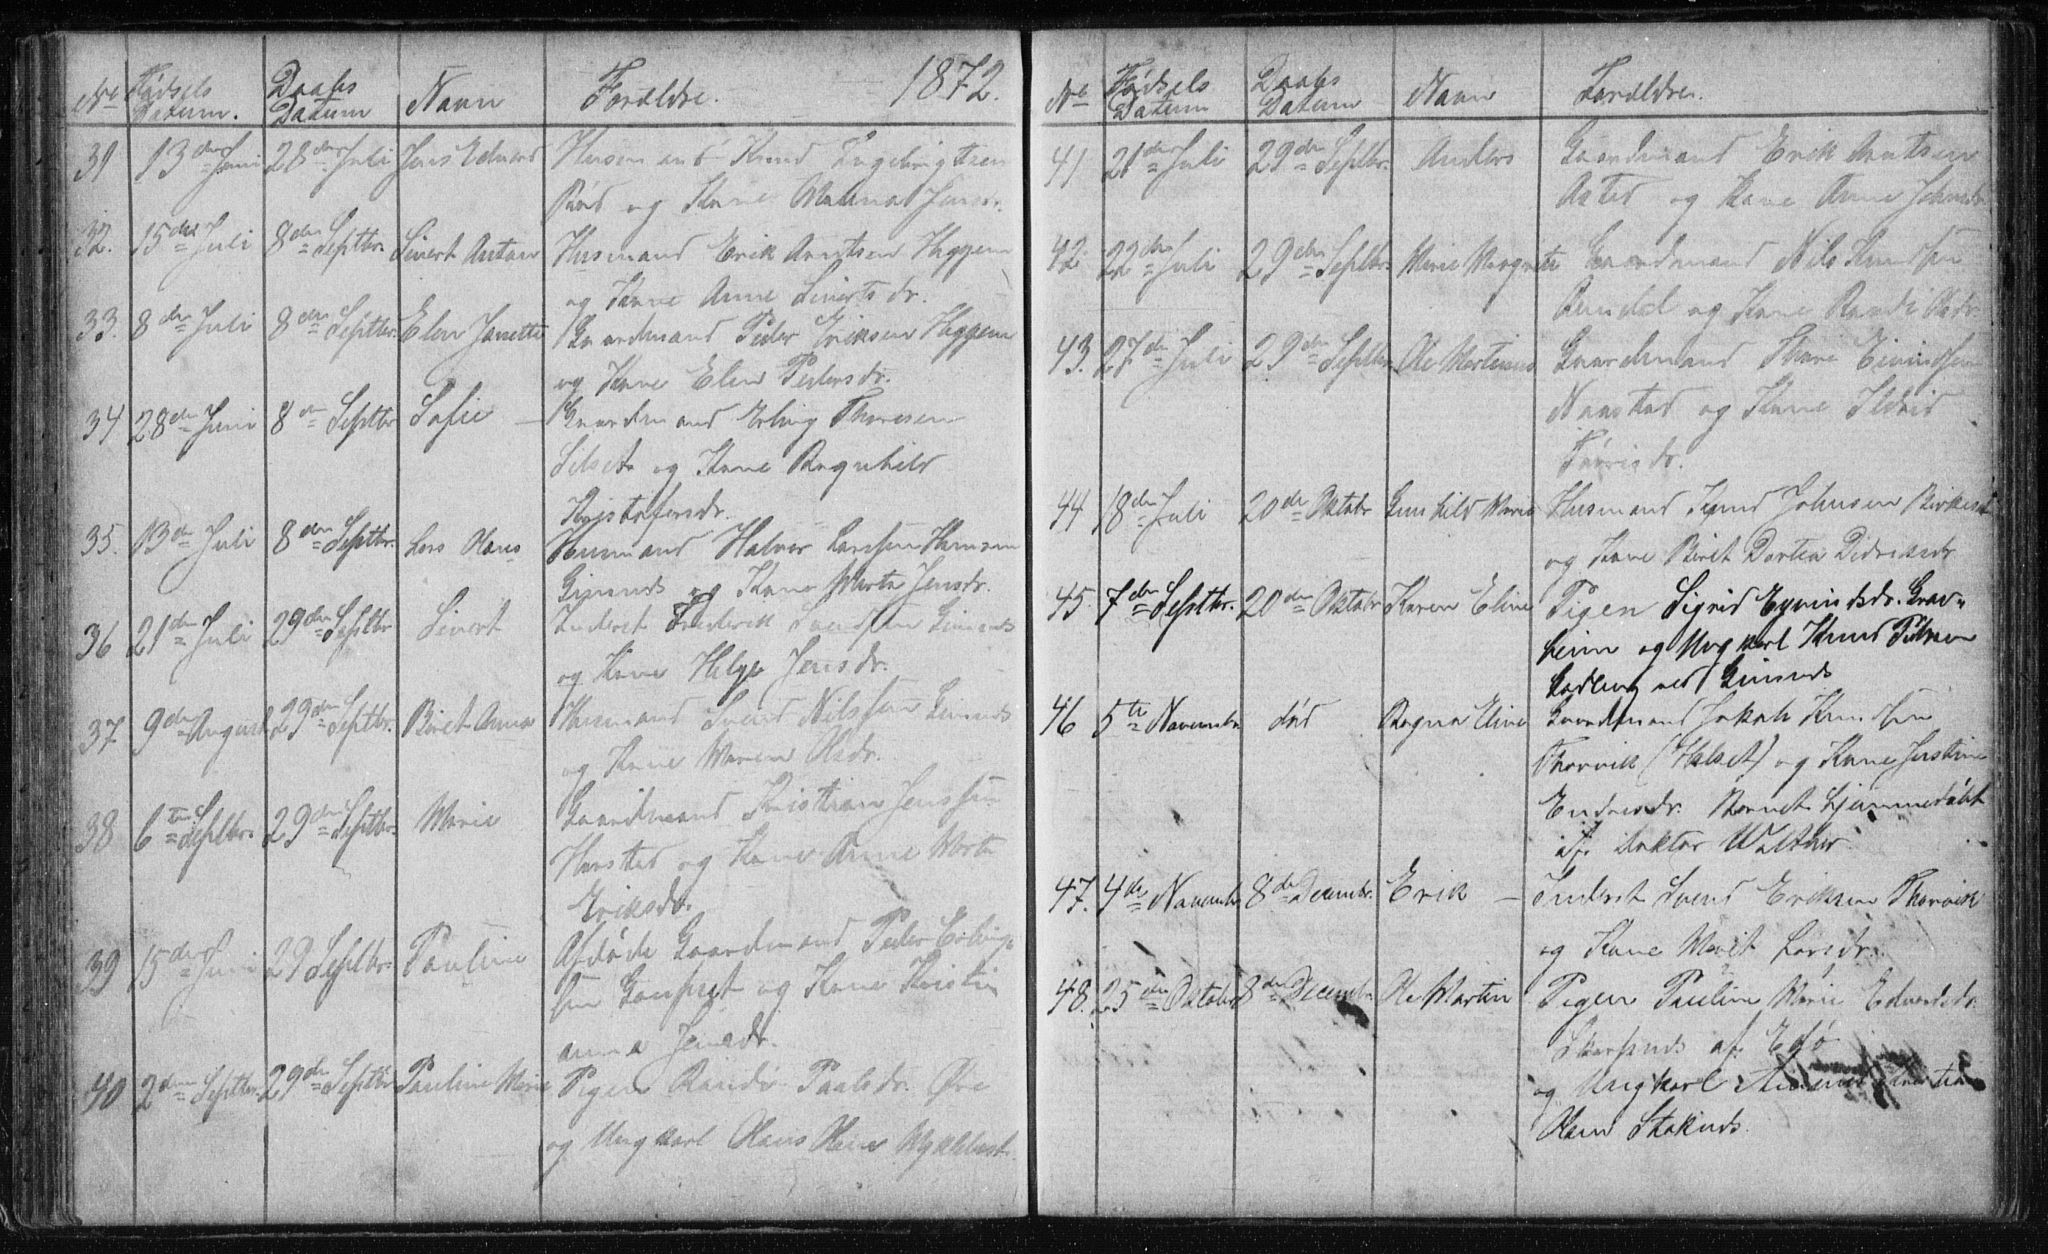 1872.
No Fødsels Datum. Daabs Datum Navn Forældre.
31 13de Juni 28de Juli Jens Edvard Husmand Knud Engebrigtsen
Rød og Kone Marina Jensdr.
32. 15de Juli 8de Septbr. Sivert Anton Husmand Erik Arntsen Heggem
og Kone Anne Sivertsdr.
33. 8de Juli 8de Septbr. Elen Janette Gaardmand Peder Eriksen Heggem
og Kone Elen Pedersdr.
34 28de Juni 8de Septbr Sofie — Gaardmand Erling Thoresen
Silset og Kone Ragnhild
Kristofersdr.
35. 13de Juli 8de Septbr. Lars Olaus Husmand Halvor Larssen Hansen
Gimnæs og Kone Marta Jensdr.
36 21de Juli 29de Septbr Sivert Inderst Frederik Svendsen Gimnæs
og Kone Helge Jensdr.
37 9de August 29de Septbr. Beret Anna Husmand Svend Nilssen Gimnæs
og Kone Maren Olsdr.
38 6te Septbr. 29de Septbr. Marie Gaardmand Kristian Jenssen
Harstad og Kone Anne Marta
Eriksdr.
39 15de Juni 29 Septbr. Pauline Afdøde Gaardmand Peder Erling-
sen Gaupset og Kone Kristi-
anna Jensdr.
40 2den Septbr. 29de Septbr Pauline Marie Pigen Randi Paalsdr. Øre
og Ungkarl Olaus Olsen Myklebust.
No Fødsels Datum Daabs Datum Navn Forældre.
41 21de Juli 29de Septbr. Anders Gaardmand Erik Arntsen
Astad og Kone Anne Johnsdr.
42. 22de Juli 29de Septbr. Marie Margrete Gaardmand Nils Knudsen
og Kone Randi Olsdr.
43. 27de Juli 29de Septbr. Ole Martinus Gaardmand Thore Eivindsen
Naastad og Kone Ildrid
Toresdr.
44 18de Juli 20de Oktobr Gunhild Marie Husmand Knud Johnsen Birkeset
og Kone Beret Dortea Didriksdr
45. 7de Septbr. 20de Oktobr Karen Eline Pigen Sigrid Eyvindsdr. Grav-
heim og Ungkarl Knud Pedersen
ved Gimnæs
46 5te Novembr død Ragna Eline Gaardmand Jakob Knudsen
Thorvik (Halset) og Kone Justine
Endresdr. Barnet hjemmedøbt
af Doktor Walther.
47. 4de Novembr 8de Decembr. Erik — Inderst Svend Eriksen Thorvik
og Kone Marit Larsdr.
48. 25de Oktobr 8de Decembr Ole Martin Pigen Pauline Marie Edvardsdr.
Skarsnæs af Edø
og Ungkarl Kristian
Olsen Staknæs.